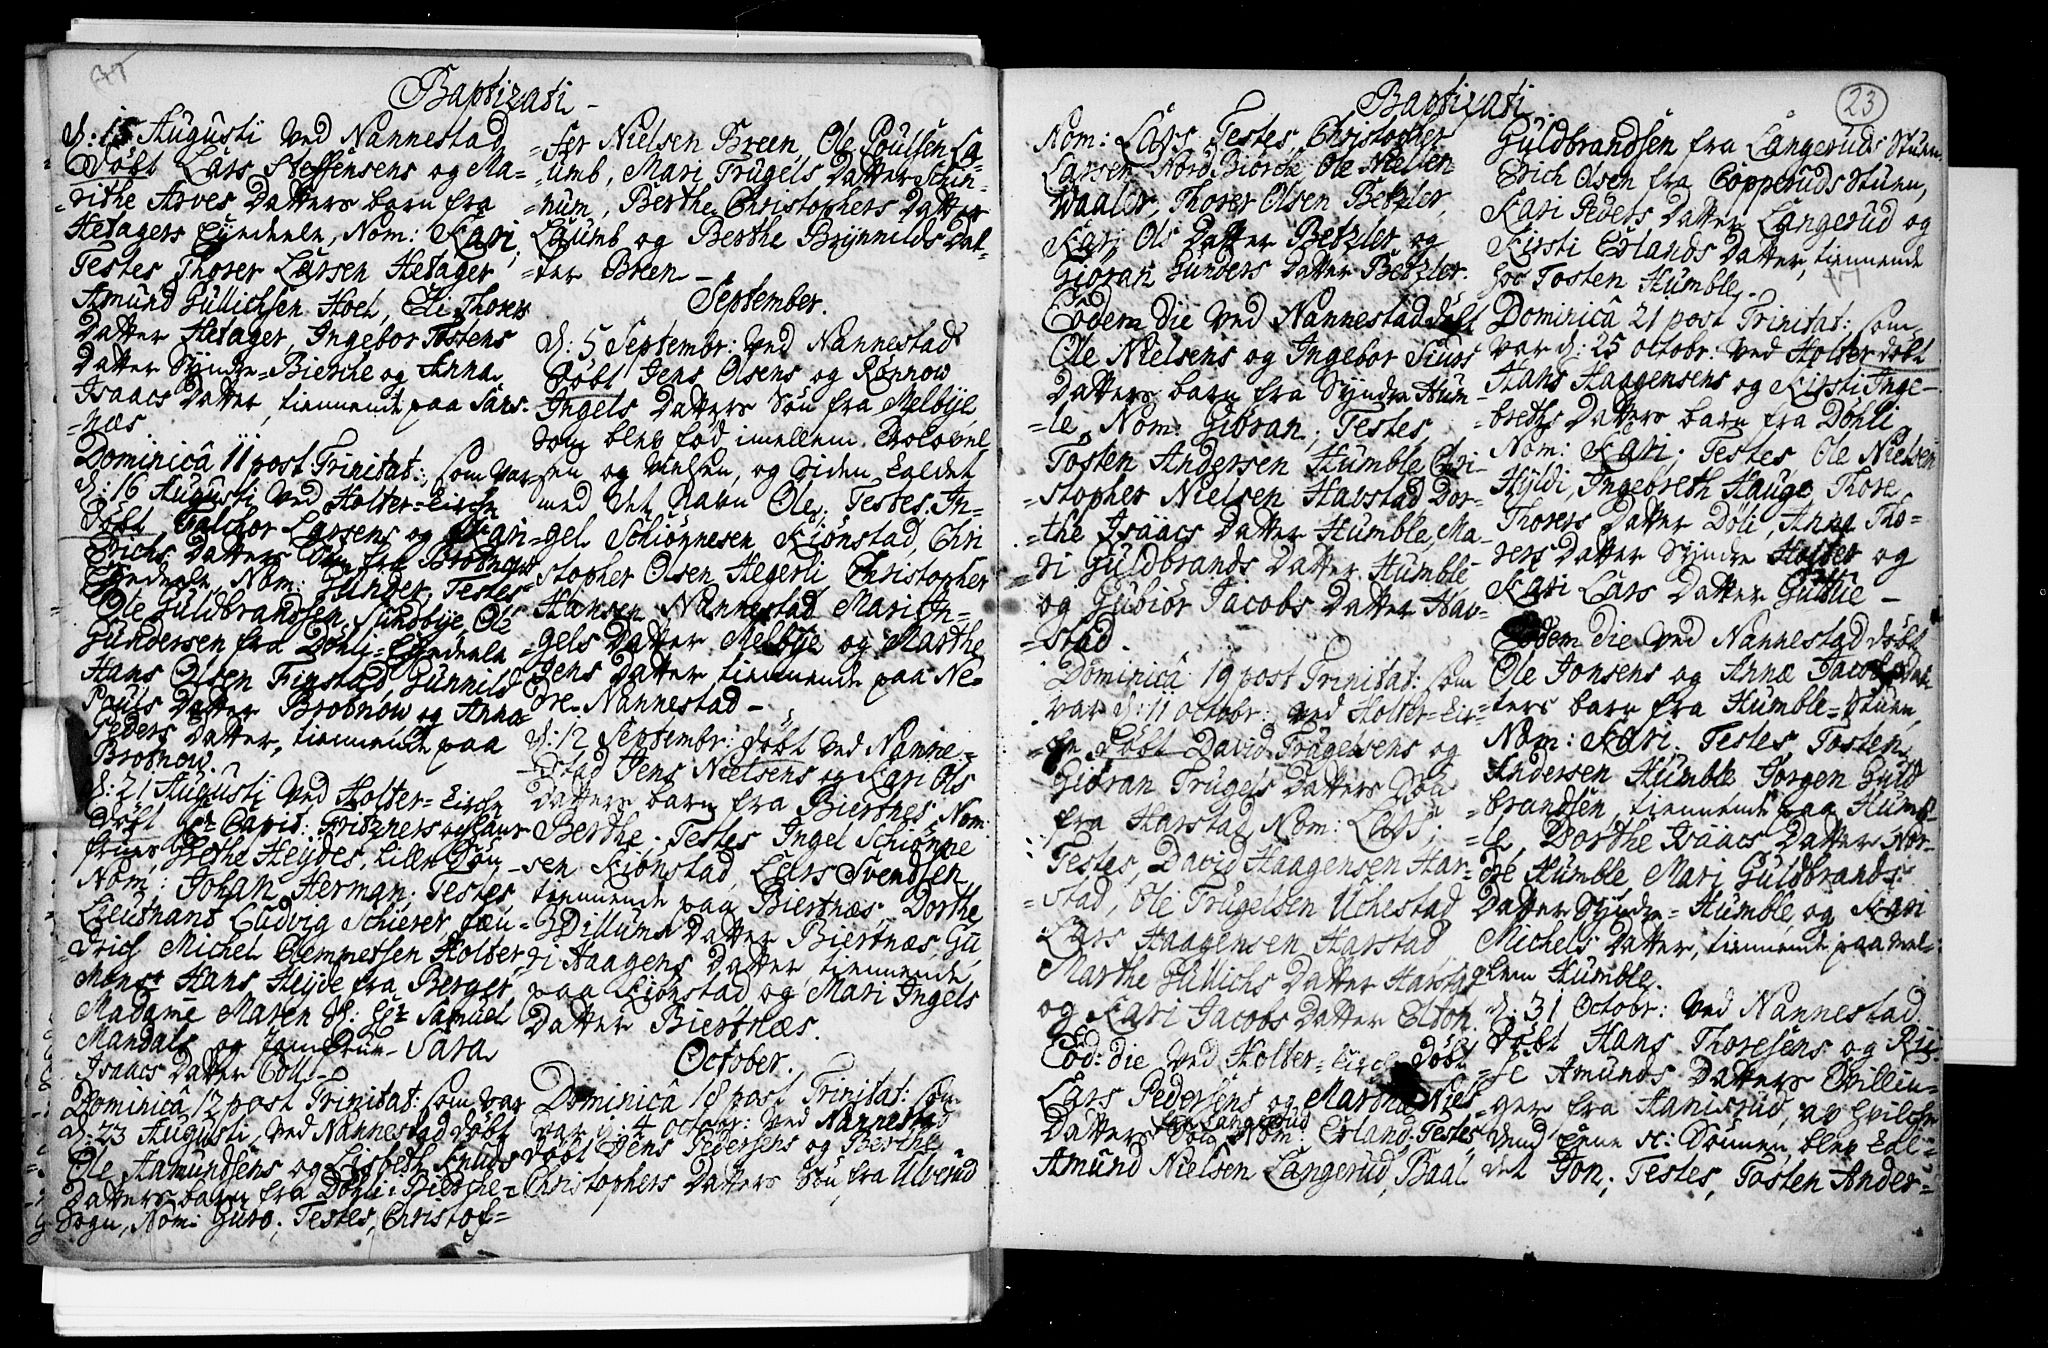 Baptizati
d: 15 Augusti ved Nannestad
Døbt Lars Steffensens og Ma-
-rithe Arves Datters barn fra
Hetagers Eyendele, Nom: Kari;
Testes Thorer Larsen Hetager,
Amund Gullichsen Hoel, Eli Thorers
Datter Hetager, Ingebor Tostens
Datter Syndre-Bierche og Anna
Isaacs Datter, tiennende paa Sørs-
-næs
Dominicâ 11 post Trinitat:, som var
d: 16 Augusti ved Holter-Kirche
Døbt Larsens og Kari
Erichs Datters Søn fra Brobnows
Eyendeele, Nom: Gunder; Testes
Ole Guldbrandsen Sundbye, Ole
Gundersen fra Døhli-Eyendeele
Hans Olsen Finstad, Gunnild
Pouls Datter Brobnow og Anna
Peders Datter, tiennende paa
Brobnow.
d: 21 Augusti ved Holter-Kirche
Døbt Hr David Fritzners og
Heydes, Lille Søn,
Nom: Johan Herman; Testes,
Lieutnant Ludvig Schierer, Fæn-
-drich Michel Clemmetsen Holter,
Monsr Hans Heyde fra Berger,
Madame Maren Sl: Hr Samuel
Mandals og Jomfrue Sara
Isaacs Datter Coll-
Dominicâ 12 post Trinitat: som var
d: 23 Augusti, ved Nannestad døbt
Ole Aamundsens og Lisbeth Knuds
Datters barn fra Døhli i Bierche-
Sogn, Nom: Guro; Testes, Christof-
-fer Nielsen Breen, Ole Poulsen La-
-umb, Mari Trugels Datter Schin-
-num, Berthe Christophers Datter
Laumb og Berthe Brynnilds Dat-
-ter Breen -
September.
d: 5 Septembr: ved Nannestad
Døbt Jens Olsens og Rønnow
Ingels Datters Søn fra Melbye,
Som blev fød imellem
-sen og Nielsen, og Siden kaldet
med det Navn Ole; Testes, In-
-gel Schiønnesen Kiønstad, Chri
stopher Olsen Hegerli Christopher
Hansen Nannestad Mari In-
-gels Datter Melbye og Marthe
Jens Datter tiennende paa Ne-
dre-Nannestad -
d: 12 Septembr: døbt ved Nanne-
-stad Jens Nielsens og Kari Ols
Datters barn fra Biertnes, Nom:
Berthe; Testes Ingel Schiønne
-sen Kiønstad, Lars Svendsen,
tiennende paa Biertnæs, Dorthe
Dillums Datter Biertnæs, Gu
-ri Haagens Datter tiennende
paa Kiønstad og Mari Ingels
Datter Biertnæs.
October.
Dominicâ 18 post Trinitat: som
var d: 4 octobr: ved Nannestad
døbt Jens Pedersens og Berthe
Christophers Datters Søn fra Ulverud
Baptizati
23
Nom: Lars; Testes, Christopher
Larsen Nord Biørche, Ole Nielsen
Waaler, Thorer Olsen Betzler,
Kari Ols Datter Betzler og
Giøran Gunders Datter Betzler.
Eodem die ved Nannestad døbt
Ole Nielsens og Ingebor Siurs
Datters barn fra Syndre Hum
-le, Nom: Giøran; Testes
Tosten Andersen Humble, Chri-
-stopher Nielsen Havstad Dor-
-the Isaacs Datter Humble, Ma-
ri Guldbrands Datter Humble
og Gubior Jacobs Datter Hav-
-stad.
Dominicâ 19 post Trinitat: som
var d: 11 octobr: ved Holter-Kir-
che Døbt David Trugelsens og
Giøran Trugels Datters Søn
fra Harstad, Nom: Lars;
Testes, David Haagensen Har-
-stad, Ole Trugelsen Uchestad
Lars Haagensen Harstad
Marthe Gullichs Datter Harstad
og Kari Jacobs Datter Elton.
Eod: die ved Holter-Kirche døbt
Lars Pedersens og Marthe Niels
Datters Søn fra Langerud, Nom: Erland; Testes,
Amund Nielsen Langerud, Paal
Guldbrandsen fra Langeruds Stuen
Erich Olsen fra Copperuds Stuen,
Kari Peders Datter Langerud og
Kirsti Erlands Datter, tiennende
hos Tosten Humble.
Dominicâ 21 post Trinitat: som
var d: 25 octobr: ved Holter døbt
Hans Haagensens og Kirsti Inge-
-breths Datters barn fra Døhli
Nom: Kari; Testes, Ole Nielsen
Hyldi, Ingebreth Hauge, Thore
Thorers Datter Døli, Anna Tho-
rers Datter Syndre Holter og
Kari Lars Datter
Eodem die ved Nannestad døbt
Ole Jonsens og Annæ Jacobs Dat
-ters barn fra Humble-Stuen,
Nom: Kari; Testes, Tosten
Andersen Humble Jørgen Guld
-brandsen, tiennende paa Humb-
-le, Dorthe Isaacs Datter Nor-
-dre Humble, Mari Guldbrands
Datter Syndre-Humble, og Kari
Michels Datter, tiennende paa mel-
-lem Humble.
d: 31 Octobr: ved Nannestad
Døbt Hans Thoresens og
Amunds Datters Tvillin-
ger fra, av Hvilche
dend Eene sc: Sønnen blev kal-
det Jon; Testes, Tosten Ander-